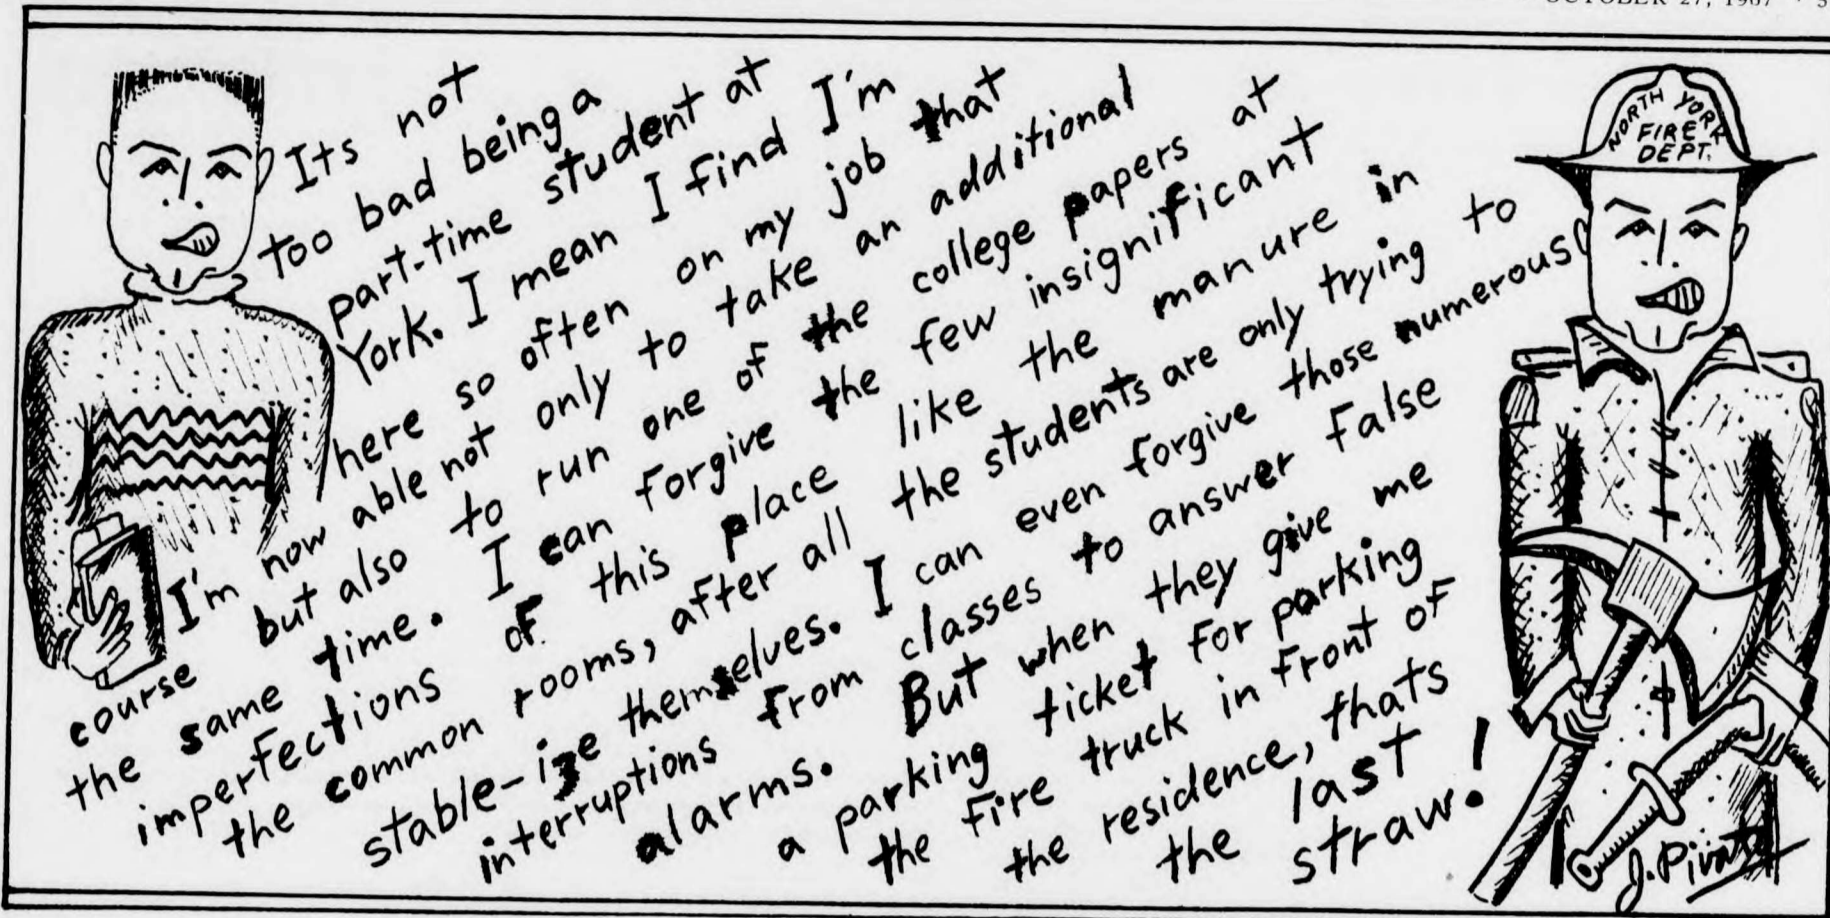 OCTOBER 27, 1967
Its not
too bad being a
part-time student at
York. I mean I find I'm
here so often on my job that
I'm now able not only to take an additional
course but also to run one of the college papers at
the same time. I can forgive the few insignificant
imperfections of this place like the manure in
the common rooms, after all the students are only trying to
stable-ize themselves. I can even forgive those numerous
interruptions from classes to answer false
alarms. But when they give me
a parking ticket for parking
the fire truck in front of
the residence, thats
the last
straw!
NORTH YORK
FIRE
DEPT.
J.